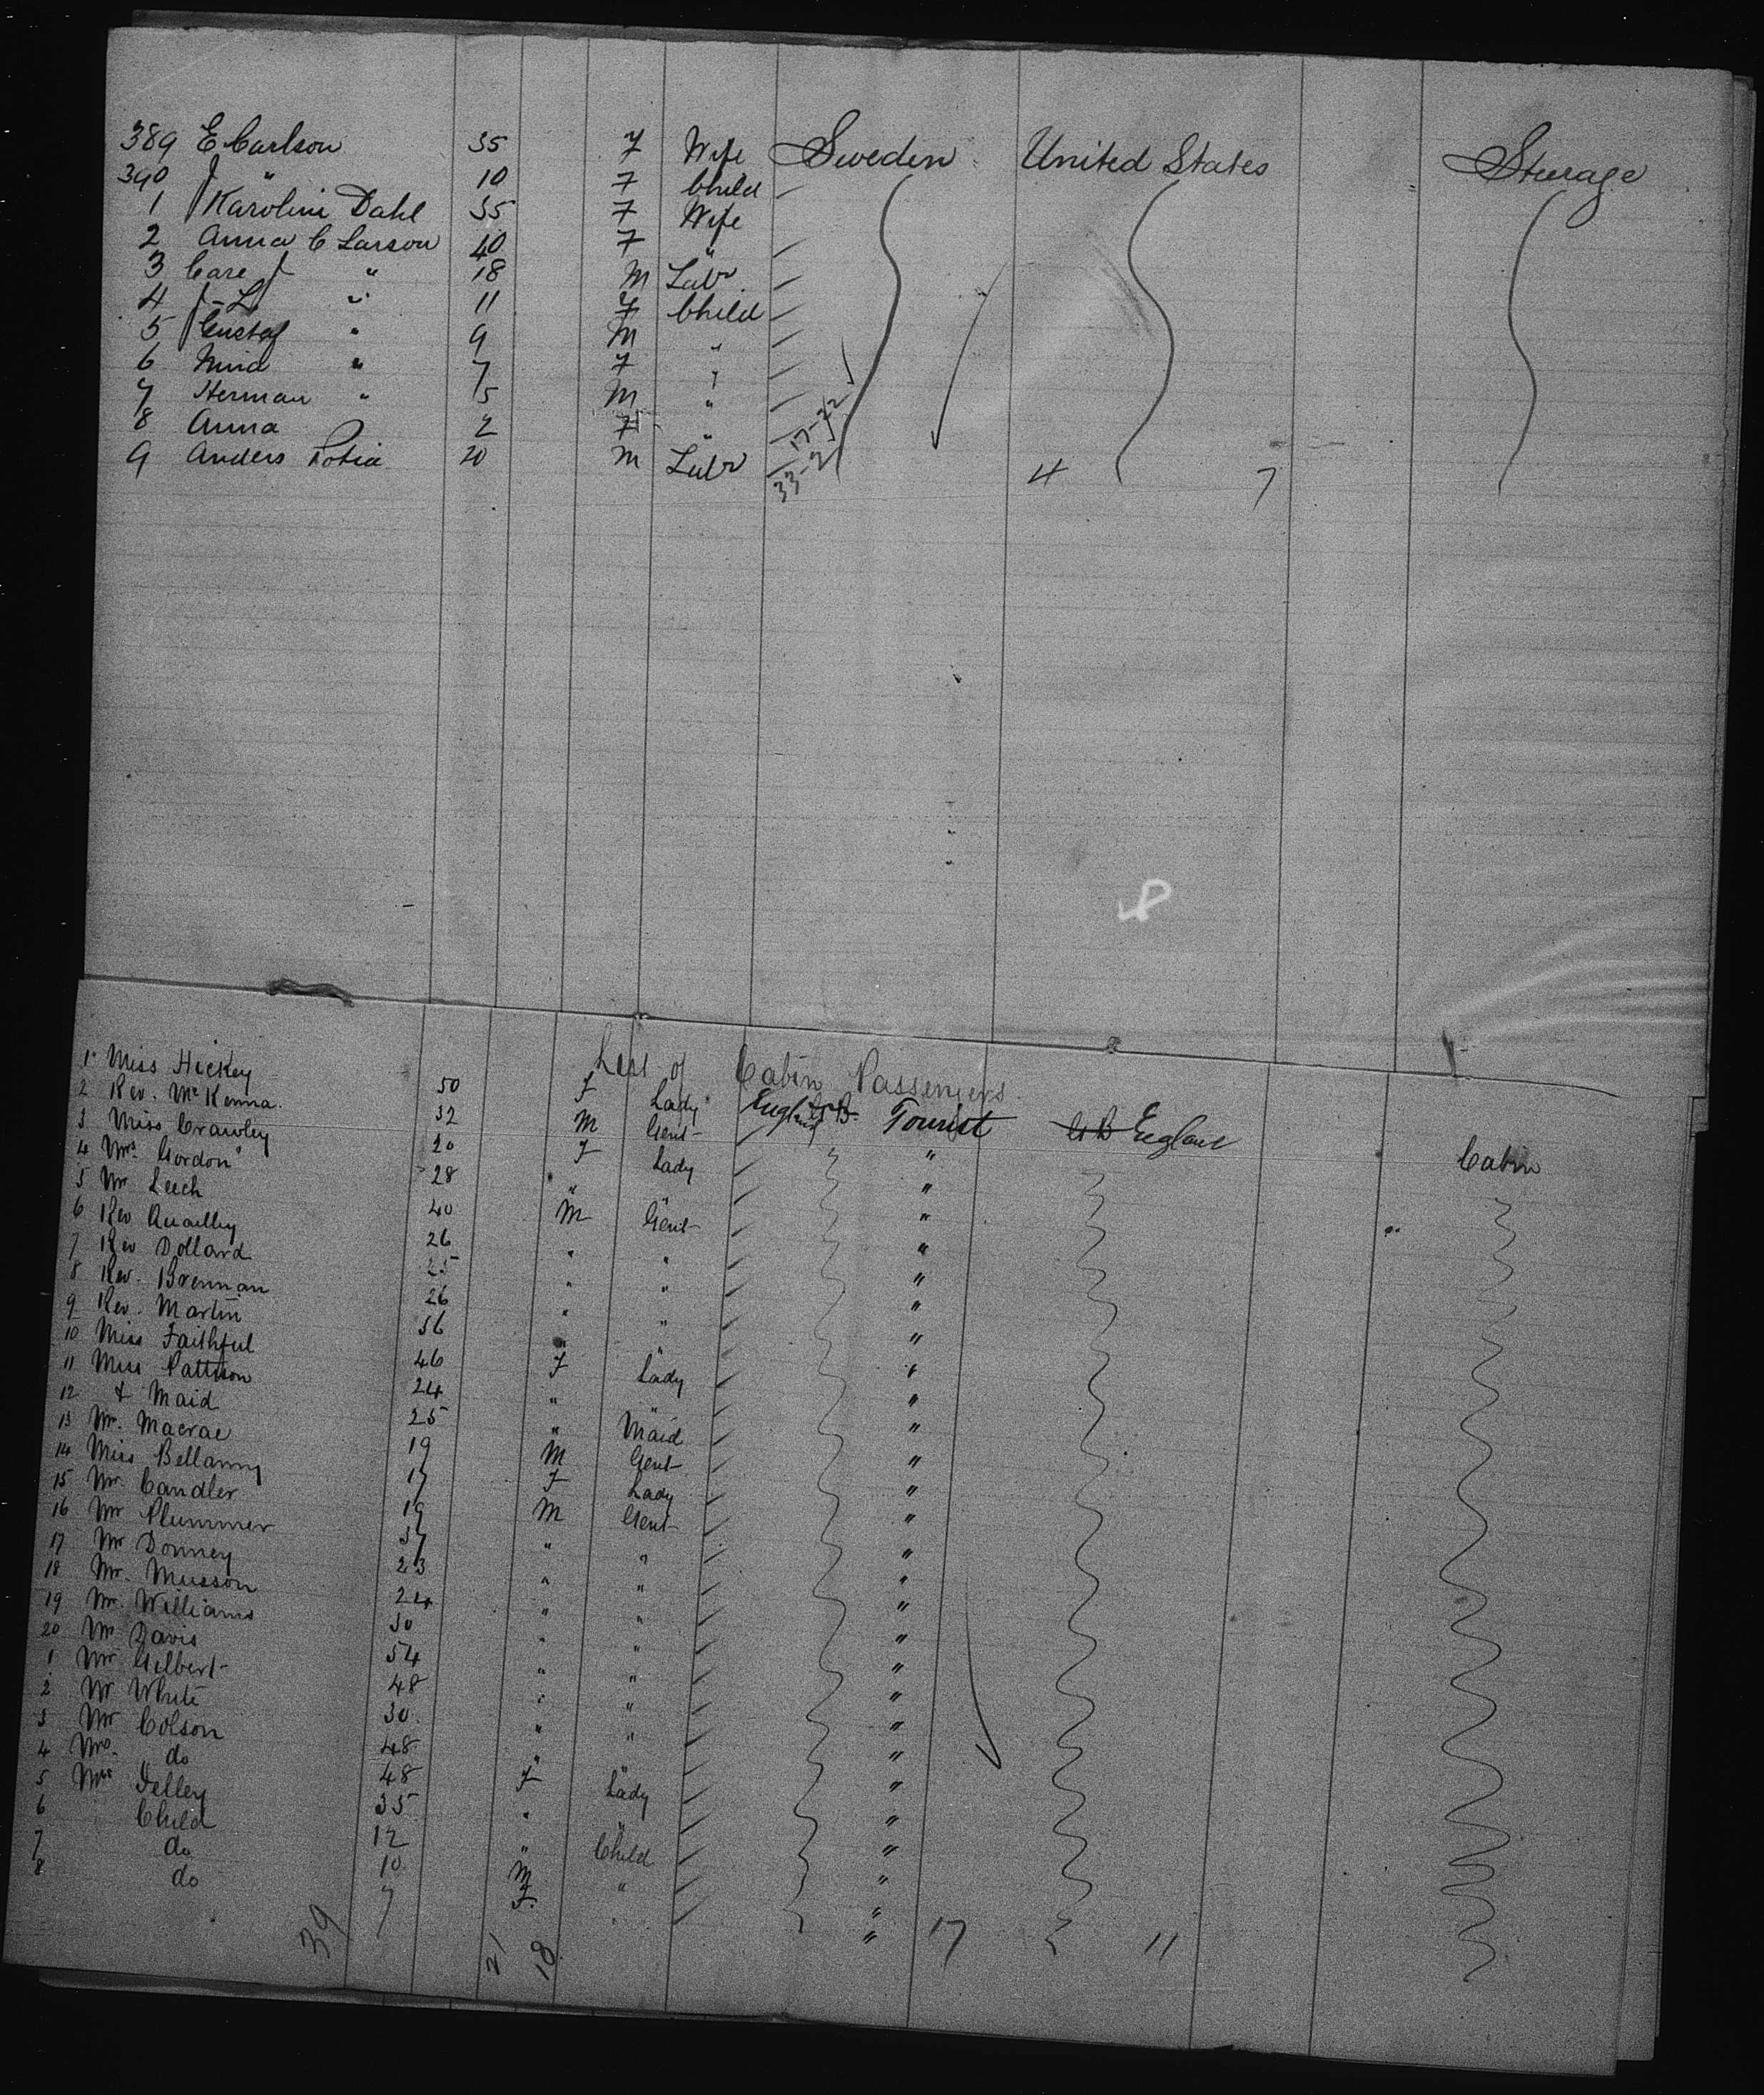 389 E Carlson 35 F Wife Sweden United States Steerage
390 J " 10 F Child
1 Karolini Dahl 35 F Wife
2 Anna C Larson 40 F "
3 Carl J " 18 M Labr
4 J-L " 11 F Child
5 Gustaf " 9 M "
6 " 7 F "
7 Herman " 5 M "
8 Anna 2 F "
9 Anders 20 M Labr
17-22
33-2
4 7
List of Cabin Passengers
1 Miss Hickey 50 F Lady England G B Tourist G B England Cabin
2 Rev. McKenna 32 M Gent "
3 Miss Crawley 20 F Lady "
4 Mrs Gordon 28 " " "
5 Mr Leech 40 M Gent "
6 Rev Quailly 26 " " "
7 Rev Dollard 25 " " "
8 Rev. Brennan 26 " " "
9 Rev. Martin 36 " " "
10 Miss Faithful 46 F Lady "
11 Miss Pattison 24 " " "
12 & Maid 25 " Maid "
13 Mr. Macrae 19 M Gent "
14 Miss Bellamy 17 F Lady "
15 Mr. Candler 19 M Gent "
16 Mr Plummer 37 " " "
17 Mr Donney 23 " " "
18 Mr. Musson 24 " " "
19 Mr. Williams 30 " " "
20 Mr Davis 54 " " "
1 Mr Gilbert 48 " " "
2 Mr White 30 " " "
3 Mr Colson 48 " " "
4 Mrs. do 48 F Lady "
5 Mrs 35 " " "
6 Child 12 " Child "
7 do 10 M " "
8 do 7 F. " "
39 21 18 17 11